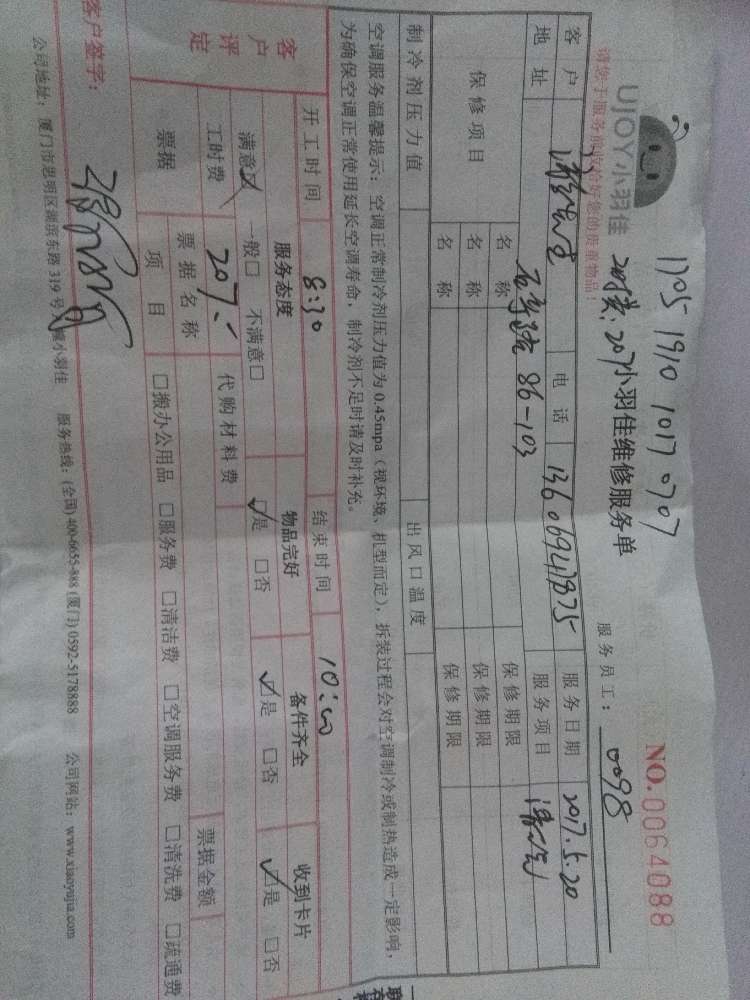 1705 1910 1017 0707
NO.0064088
UJOY小羽佳
小羽佳维修服务单
服务员工： 0098
请您于服务前收拾好您的贵重物品！
客户 电话 13606947875 服务日期 2017.5.20
地址 86-103 服务项目
保修项目 名称 保修期限
名称 保修期限
名称 保修期限
制冷剂压力值 出风口温度
空调服务温馨提示：空调正常制冷剂压力值为0.45mpa（视环境、机型而定），拆装过程会对空调制冷或制热造成一定影响，
为确保空调正常使用延长空调寿命，制冷剂不足时请及时补充。
开工时间 8:30 结束时间 10:00
客户评定 服务态度 物品完好 备件齐全 收到卡片
满意☑ 一般□ 不满意□ ☑是 □否 ☑是 □否 ☑是 □否
工时费 207 代购材料费
票据 票据名称 票据金额
项目 □搬办公用品 □服务费 □清洁费 □空调服务费 □清洗费 □疏通费
客户签字：
公司地址：厦门市思明区湖滨东路319号 小羽佳 服务热线：(全国) 400-6655-888 (厦门) 0592-5178888 公司网站：www.xiaoyujia.com